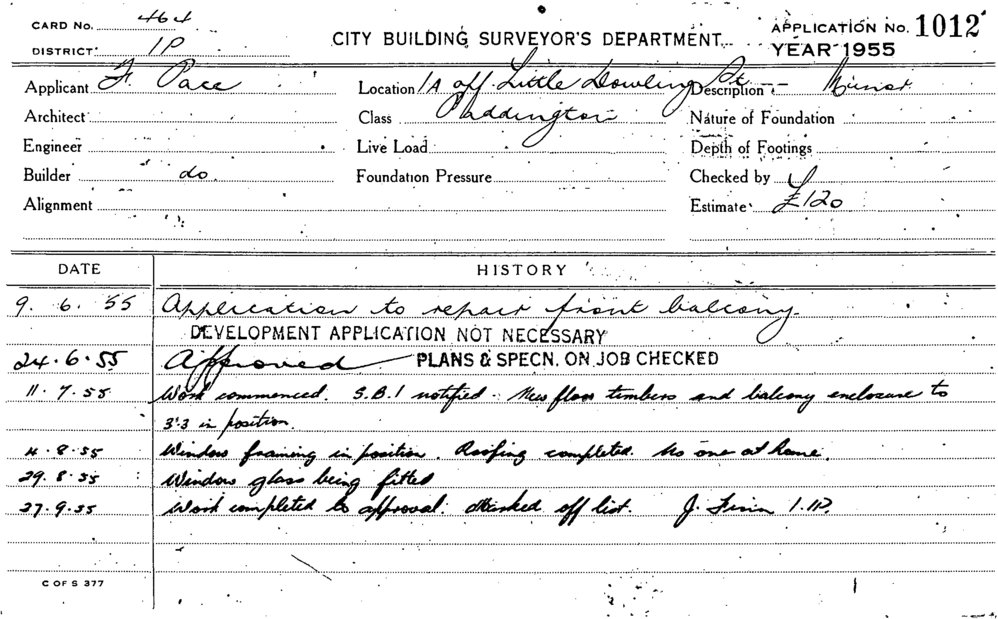 CARD No. 464
DISTRICT 1P
CITY BUILDING SURVEYOR'S DEPARTMENT
APPLICATION No. 1012
YEAR 1955
Applicant F. Pace
Location 1A off. Little Dowling St
Description Minor
Architect
Class Paddington
Nature of Foundation
Engineer
Live Load
Depth of Footings
Builder do.
Foundation Pressure
Checked by
Alignment
Estimate £120
DATE HISTORY
9. 6. 55 Application to repair front balcony.
DEVELOPMENT APPLICATION NOT NECESSARY
24.6.55 Approved PLANS & SPECN. ON JOB CHECKED
11.7.55 Work commenced. S.B.I notified. New floor timbers and balcony enclosure to
3'3 in position.
4.8.55 Window framing in position. Roofing completed. No one at home.
29.8.55 Window glass being fitted
27.9.55 Work completed to approval. Marked off list. J. 1.1P.
C OF S 377